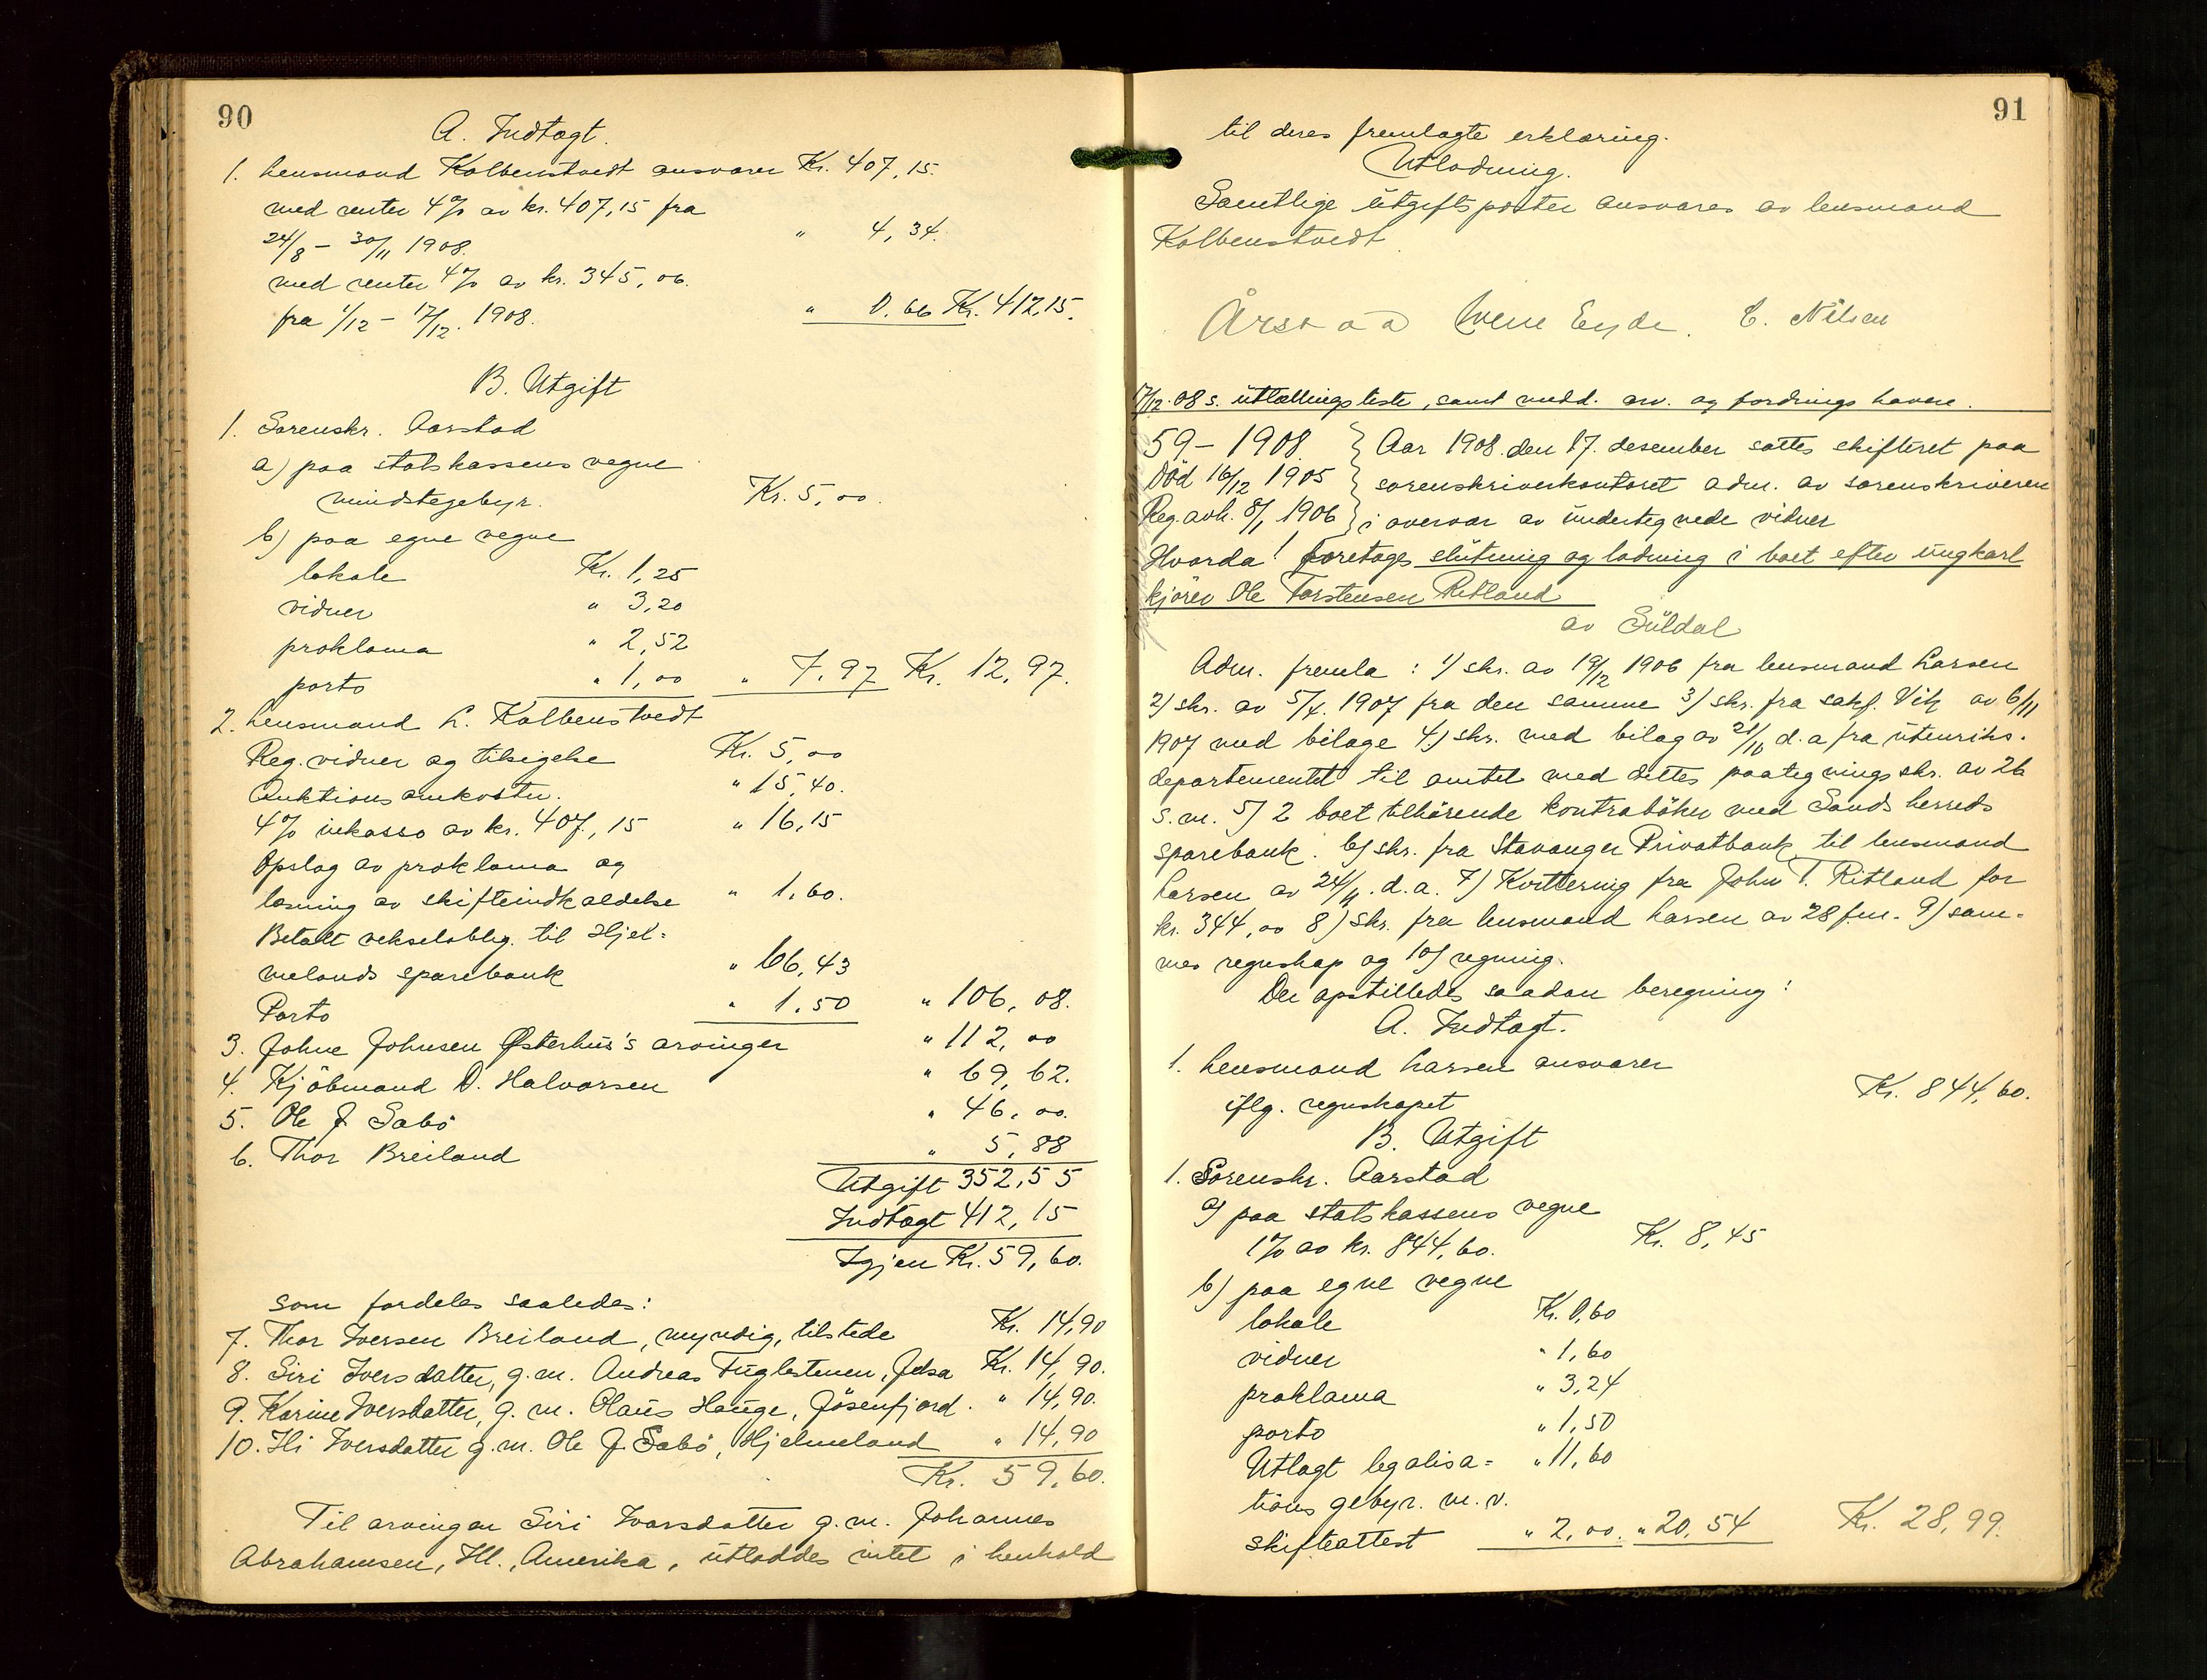 90
A. Indtægt.
1. Lensmand Kolbenstvedt ansvarer Kr. 407,15.
med renter 4% av kr. 407,15 fra
24/8 – 30/11 1908. " 4,34.
med renter 4% av kr. 345,06.
fra 1/12 – 17/12. 1908. " 0.66 Kr. 412,15.
B. Utgift
1. Sorenskr. Aarstad
a) paa statskassens vegne
mindstegebyr. Kr. 5,00.
b) paa egne vegne
lokale Kr. 1,25
vidner " 3,20
proklama " 2,52
porto " 1,00 " 7,97 Kr. 12,97.
2. Lensmand L. Kolbenstvedt
Reg. vidner og tilsigelse Kr. 5,00
Auktionsomkostn. " 15,40.
4% inkasso av kr. 407,15 " 16,15
Opslag av proklama og
læsning av skifteindkaldelse " 1,60.
Betalt vekseloblig. til Hjel-
melands sparebank " 66,43
Porto " 1,50 " 106,08.
3. Johne Johnsen Østerhus's arvinger " 112,00
4. Kjöbmand D. Halvorsen " 69,62.
5. Ole J. Sabö " 46,00.
6. Thor Breiland " 5,88
Utgift 352,55
Indtægt 412,15
Igjen Kr. 59,60.
som fordeles saaledes:
7. Thor Iversen Breiland, myndig, tilstede Kr. 14,90
8. Siri Iversdatter, g.m. Andreas Fuglestenen, Jelsa Kr. 14,90.
9. Karine Iversdatter, g.m. Olaus Hauge, Jösenfjord. " 14,90.
10. Ili Iversdatter g.m. Ole J. Sabö, Hjelmeland " 14,90
Kr. 59,60.
Til arvingen Siri Ivarsdatter g.m. Johannes
Abrahamsen, Ill., Amerika, utloddes intet i henhold
91
til deres fremlagte erklæring.
Utlodning.
Samtlige utgiftsposter ansvares av lensmand
Kolbenstvedt.
Årstad Eyde. C. Nilsen
17/12.08 s. utlællingsliste, samt medd. arv. og fordringshavere.
59 – 1908. Aar 1908. den 17. desember sattes skifteret paa
Död 16/12 1905 sorenskriverkontoret adm. av sorenskriveren
Reg. avh. 8/1 1906 i overvær av undertegnede vidner
Hvorda! foretoges slutning og lodning i boet efter ungkarl
kjörer Ole Torstensen Ritland
av Suldal
Adm. fremla: 1) skr. av 19/12 1906 fra lensmand Larsen
2) skr. av 5/4. 1907 fra den samme 3) skr. fra sakf. Vik av 6/11
1907 med bilage 4) skr. med bilag av 21/10 d.a fra utenriks-
departementet til amtet med dettes paategningsskr. av 26
s.m. 5) 2 boet tilhörende kontraböker med Sands herreds
sparebank. 6) skr. fra Stavanger Privatbank til lensmand
Larsen av 24/4. d.a. 7) Kvittering fra John T. Ritland for
kr. 344,00 8) skr. fra lensmand Larsen av 28 f.m. 9) sam-
mes regnskap og 10) regning.
Der opstilledes saadan beregning:
A. Indtægt.
1. Lensmand Larsen ansvarer
iflg. regnskapet Kr. 844,60.
B. Utgift
1. Sorenskr. Aarstad
a) paa statskassens vegne
1% av kr. 844,60. Kr. 8,45
b) paa egne vegne
lokale Kr. 0,60
vidner " 1,60
proklama " 3,24
porto " 1,50
Utlagt legalisa- " 11,60
tions gebyr. m.v.
skifteattest " 2,00. " 20,54 Kr. 28,99.